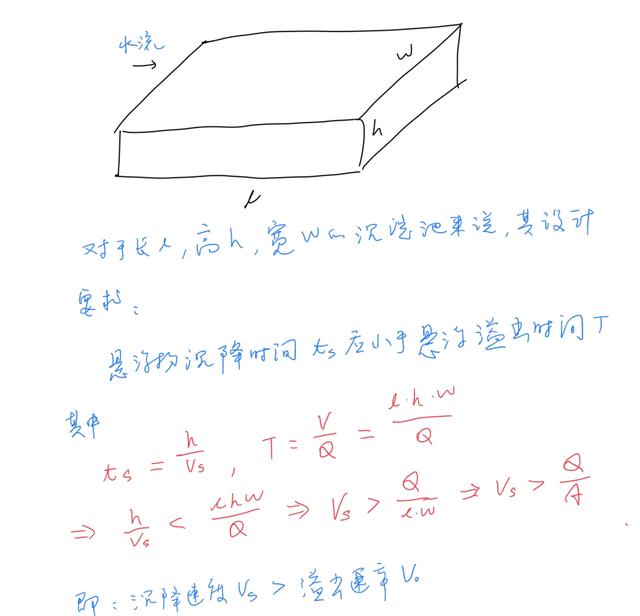 水流
w
h
l
对于长l,高h,宽w的沉淀池来说,其设计
要求:
悬浮物沉降时间 ts 应小于悬浮溢出时间 T
其中
ts = h/Vs , T = V/Q = l·h·w/Q
⇒ h/Vs < lhw/Q ⇒ Vs > Q/l·w ⇒ Vs > Q/A
即:沉降速度 Vs > 溢出速率 V₀